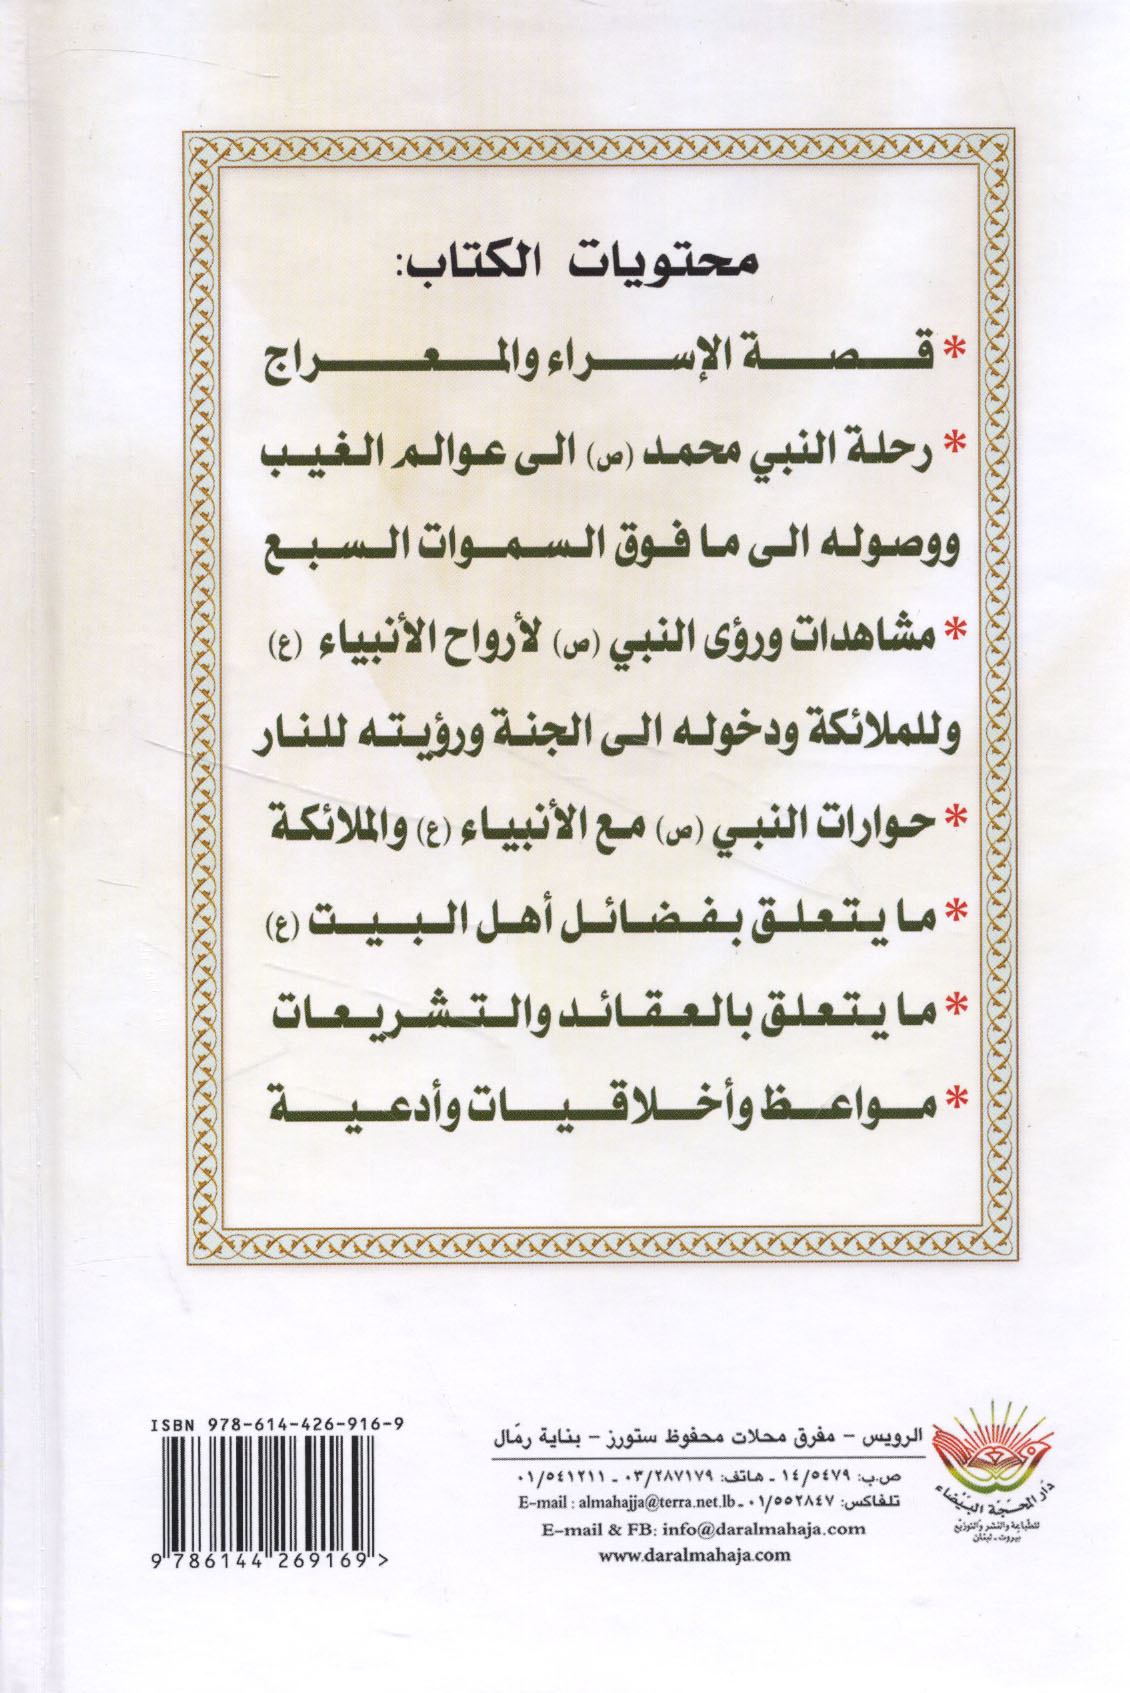 محتويات الكتاب:
* قصة الإسراء والمعراج
* رحلة النبي محمد (ص) الى عوالم الغيب
ووصوله الى ما فوق السموات السبع
* مشاهدات ورؤى النبي (ص) لأرواح الأنبياء (ع)
وللملائكة ودخوله الى الجنة ورؤيته للنار
* حوارات النبي (ص) مع الأنبياء (ع) والملائكة
* ما يتعلق بفضائل أهل البيت (ع)
* ما يتعلق بالعقائد والتشريعات
* مواعظ وأخلاقيات وأدعية
دار المحجّة البيضاء
للطباعة والنشر والتوزيع
بيروت - لبنان
الرويس - مفرق محلات محفوظ ستورز - بناية رمّال
ص.ب: ١٤/٥٤٧٩ - هاتف: ٠٣/٢٨٧١٧٩ - ٠١/٥٤١٢١١
تلفاكس: ٠١/٥٥٢٨٤٧ - E-mail : almahajja@terra.net.lb
E-mail & FB: info@daralmahaja.com
www.daralmahaja.com
ISBN 978-614-426-916-9
9 786144 269169 >